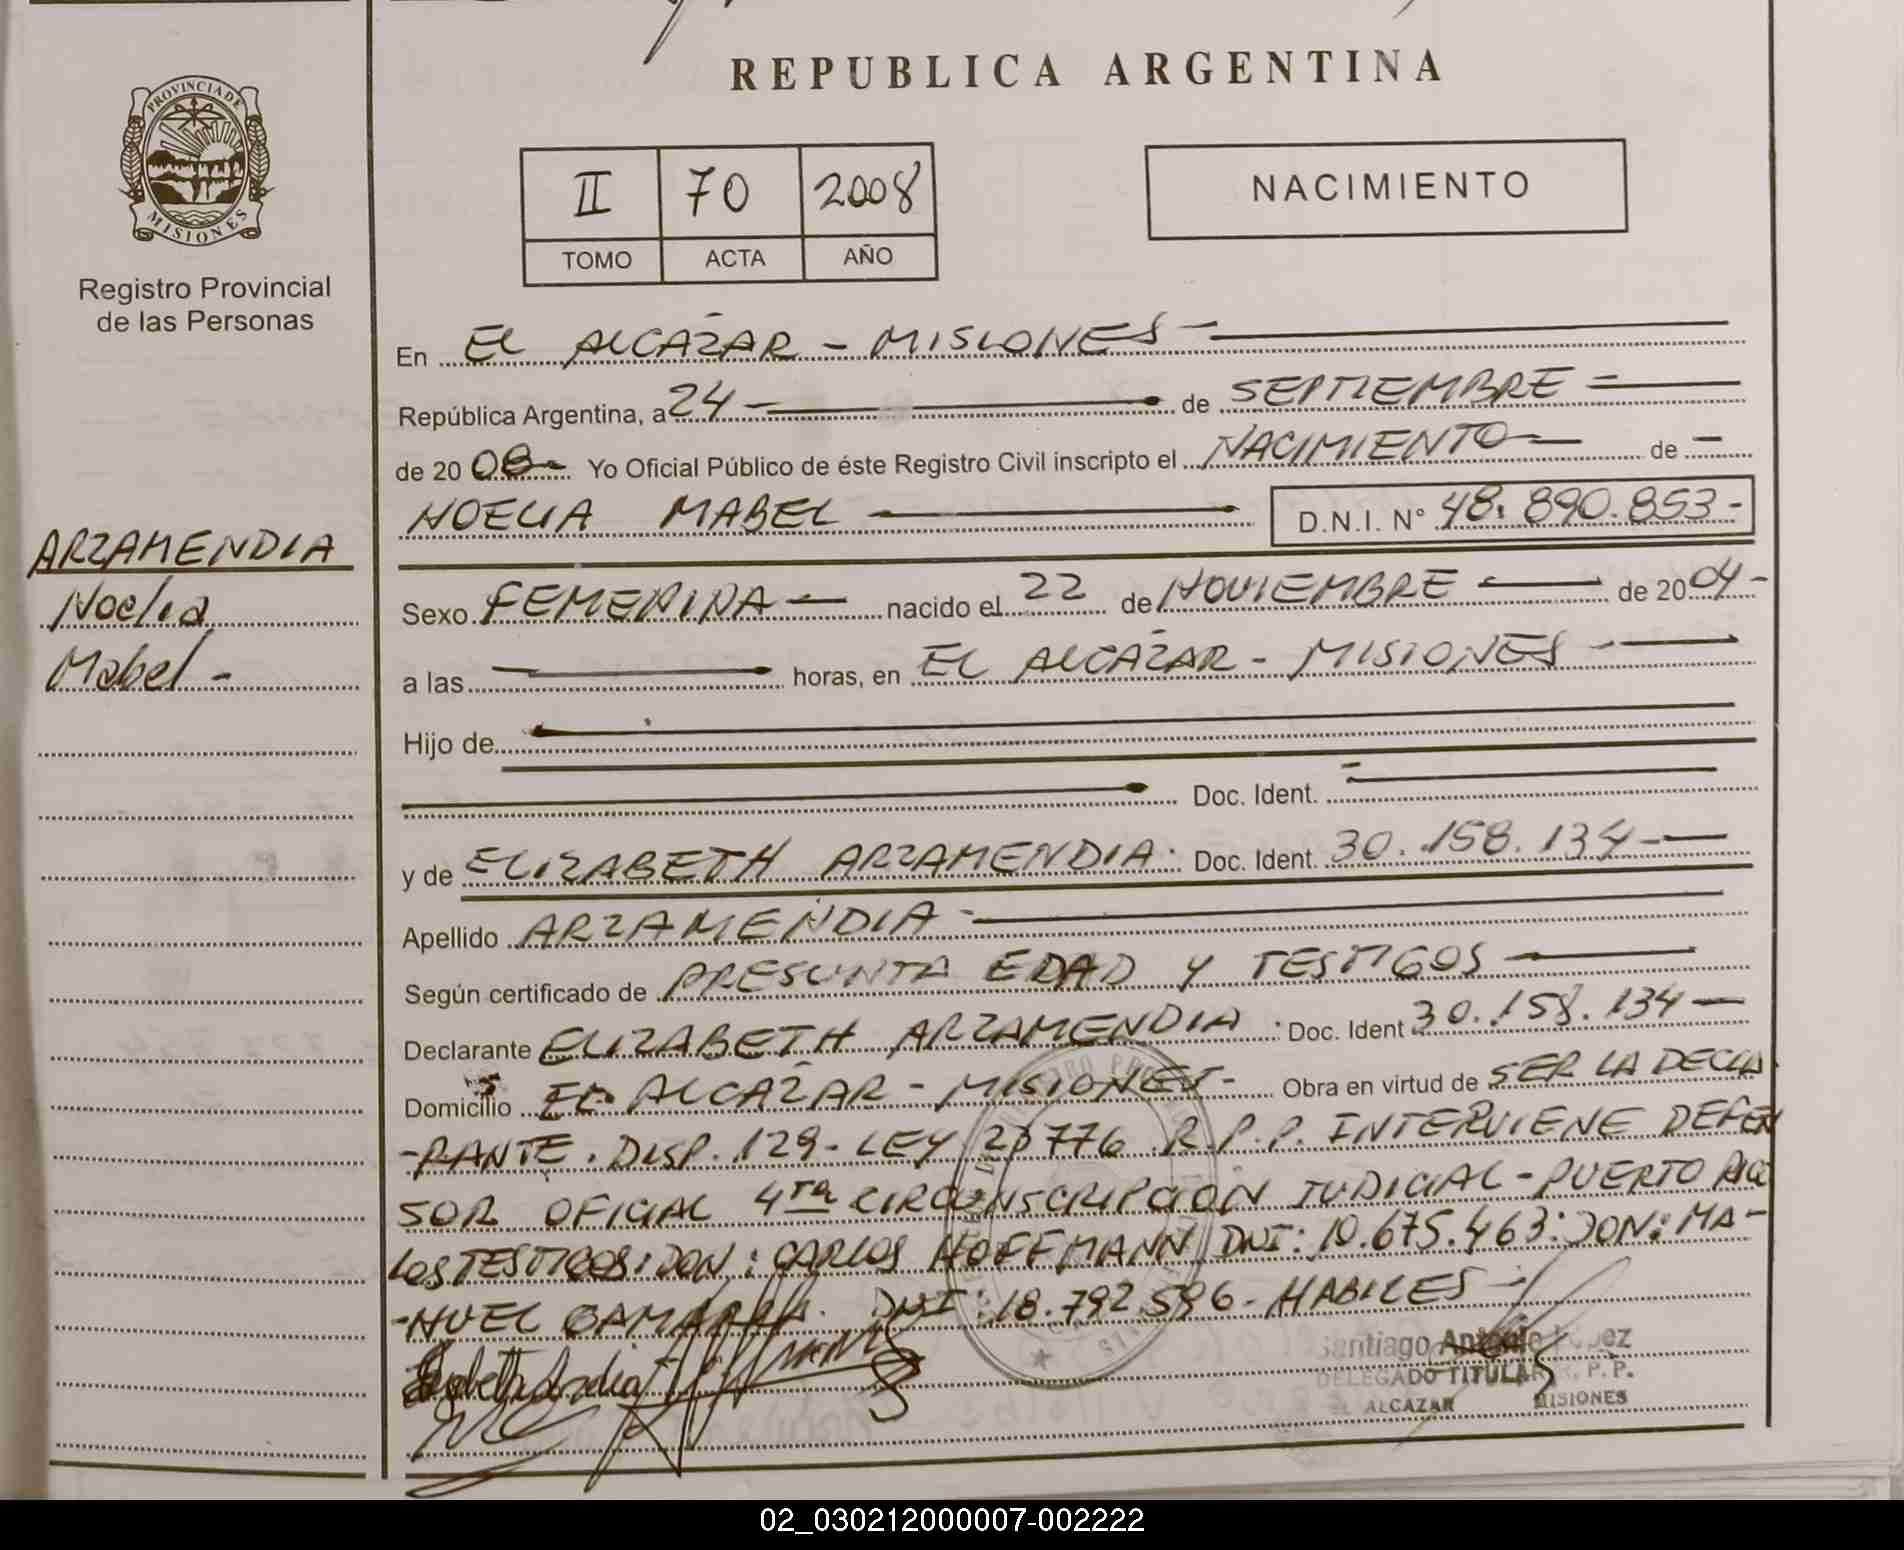 REPUBLICA ARGENTINA
PROVINCIA DE
MISIONES
Registro Provincial
de las Personas
II 70 2008
TOMO ACTA AÑO
NACIMIENTO
En EL ALCAZAR - MISIONES -
República Argentina, a 24 - de SEPTIEMBRE -
de 20 08 - Yo Oficial Público de éste Registro Civil inscripto el NACIMIENTO - de -
NOELIA MABEL D.N.I. N° 48.890.853-
ARZAMENDIA
Noelia
Mabel -
Sexo FEMENINA - nacido el 22 de NOVIEMBRE - de 20 04-
a las horas, en EL ALCAZAR - MISIONES -
Hijo de
Doc. Ident.
y de ELIZABETH ARZAMENDIA. Doc. Ident. 30.158.134-
Apellido ARZAMENDIA -
Según certificado de PRESUNTA EDAD Y TESTIGOS
Declarante ELIZABETH ARZAMENDIA. Doc. Ident 30.158.134-
Domicilio EL ALCAZAR - MISIONES - Obra en virtud de SER LA DECLA
-RANTE. DISP. 129- LEY 20776 R.P.P. INTERVIENE DEFEN
SOR OFICIAL 4ta CIRCUNSCRIPCION JUDICIAL - PUERTO RICO
LOS TESTIGOS: DON: CARLOS HOFFMANN DNI: 10.675.463: DON: MA-
-NUEL GAMARRA. DNI: 18.792.596- HABILES -
Santiago Antonio Lopez
DELEGADO TITULAR R. P. P.
EL ALCAZAR MISIONES
02_030212000007-002222